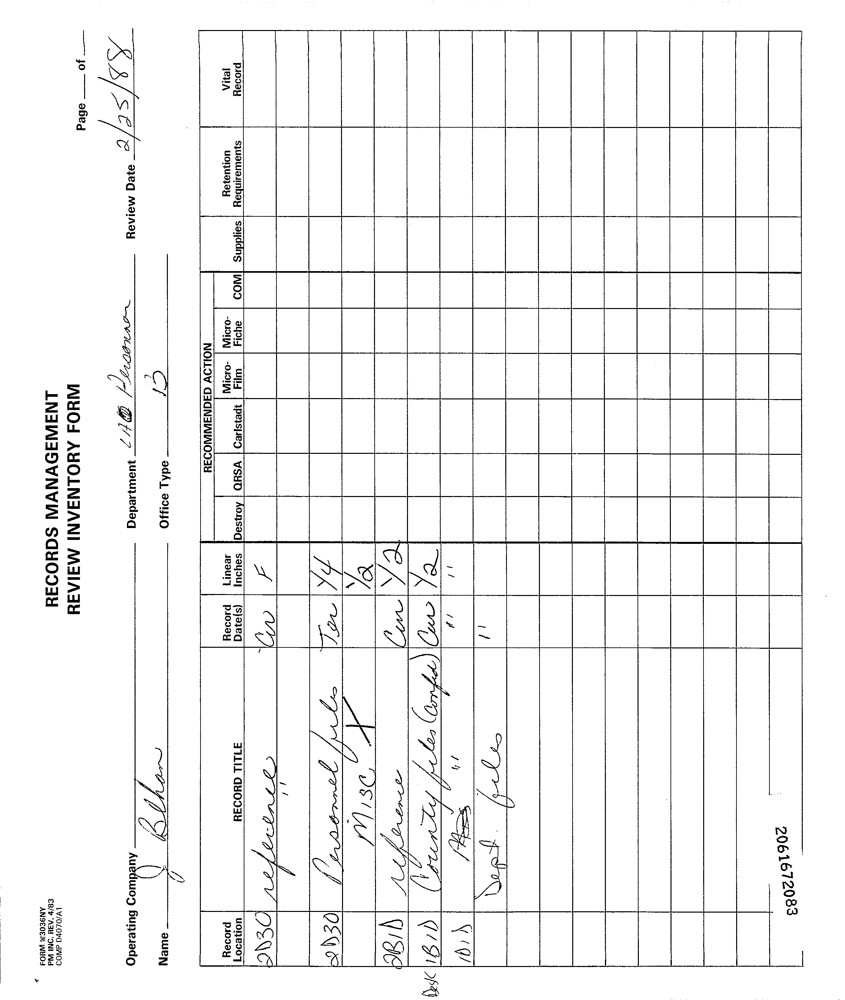 FORM #3036NY
PM INC. REV. 4/83
COMP D4070/A1
RECORDS MANAGEMENT
REVIEW INVENTORY FORM
Page ___ of ___
Operating Company ___ Department Personnel Review Date 2/25/88
Name J Behan Office Type B
RECOMMENDED ACTION
Record Location RECORD TITLE Record Date(s) Linear Inches Destroy QRSA Carlstadt Micro-Film Micro-Fiche COM Supplies Retention Requirements Vital Record
2D30 reference Cur F
"
2D30 Personnel files Ter 1/4
MISC 1/2
2B1D reference Cur 1/2
Desk 1B1D County files (Confid) Cur 1/2
1D1D " " "
Dept. files "
2061672083